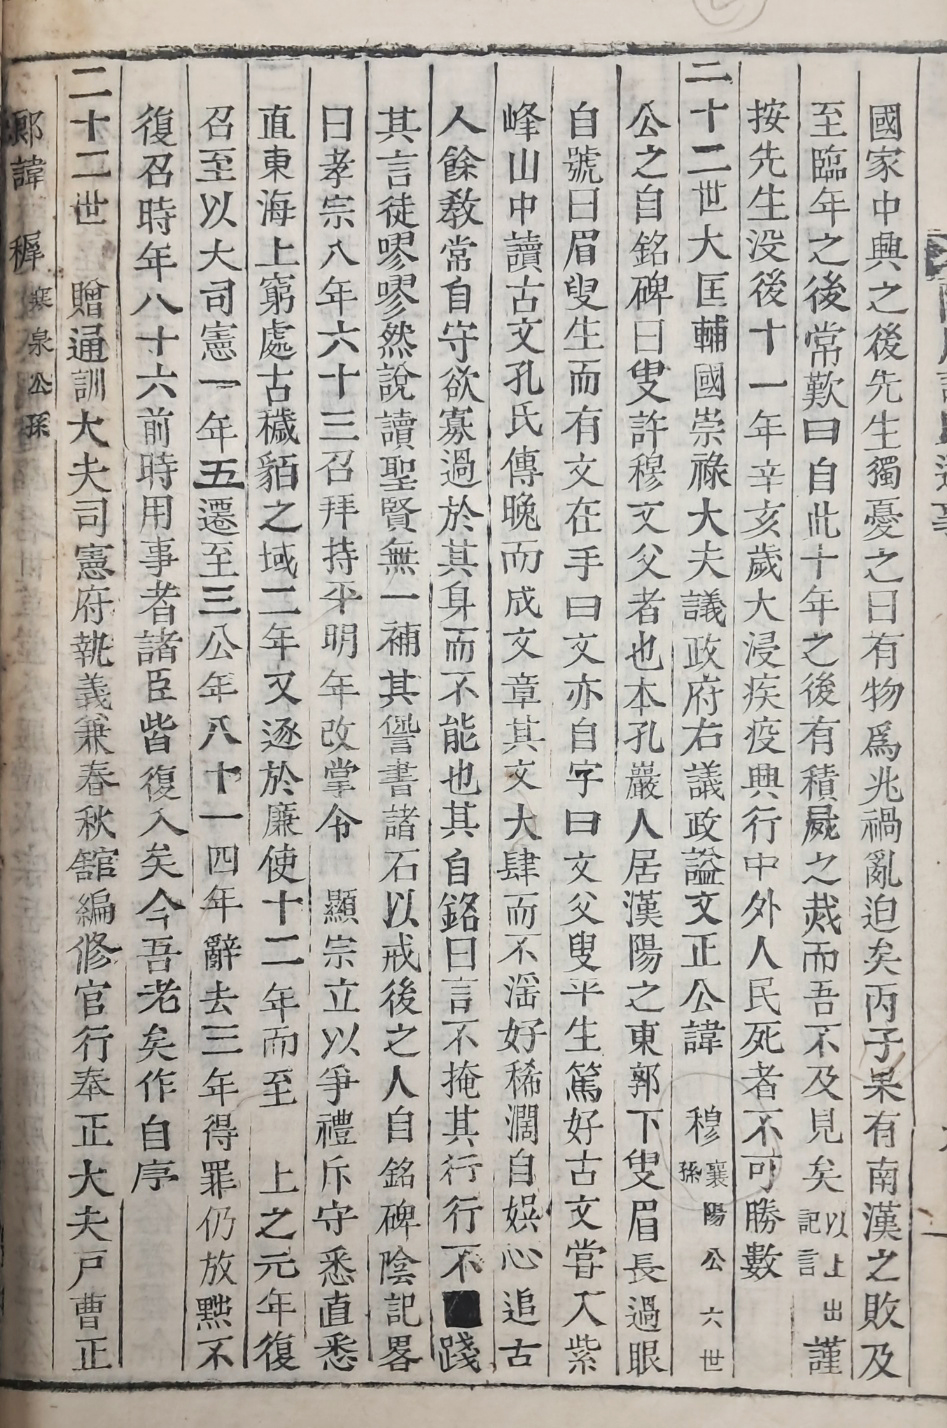 國家中興之後先生獨憂之曰有物爲兆禍亂迫矣丙子果有南漢之敗及
至臨年之後常歎曰自此十年之後有積屍之烖而吾不及見矣以上出記言謹
按先生没後十一年辛亥歲大浸疾疫興行中外人民死者不可勝數
二十二世大匡輔國崇祿大夫議政府右議政謚文正公諱 穆襄陽公六世孫
公之自銘碑曰叟許穆文父者也本孔巖人居漢陽之東郭下叟眉長過眼
自號曰眉叟生而有文在手曰文亦自字曰文父叟平生篤好古文甞入紫
峰山中讀古文孔氏傳晚而成文章其文大肆而不滛好稀濶自娛心追古
人餘敎常自守欲寡過於其身而不能也其自銘曰言不掩其行行不踐
其言徒嘐嘐然說讀聖賢無一補其諐書諸石以戒後之人自銘碑陰記畧
曰孝宗八年六十三召拜持平明年改掌令 顯宗立以爭禮斥守悉直悉
直東海上窮處古穢貊之域二年又逐於廉使十二年而至 上之元年復
召至以大司憲一年五遷至三公年八十一四年辭去三年得罪仍放黜不
復召時年八十六前時用事者諸臣皆復入矣今吾老矣作自序
二十二世 贈通訓大夫司憲府執義兼春秋舘編修官行奉正大夫戶曹正
郞諱 穉襄泉公孫